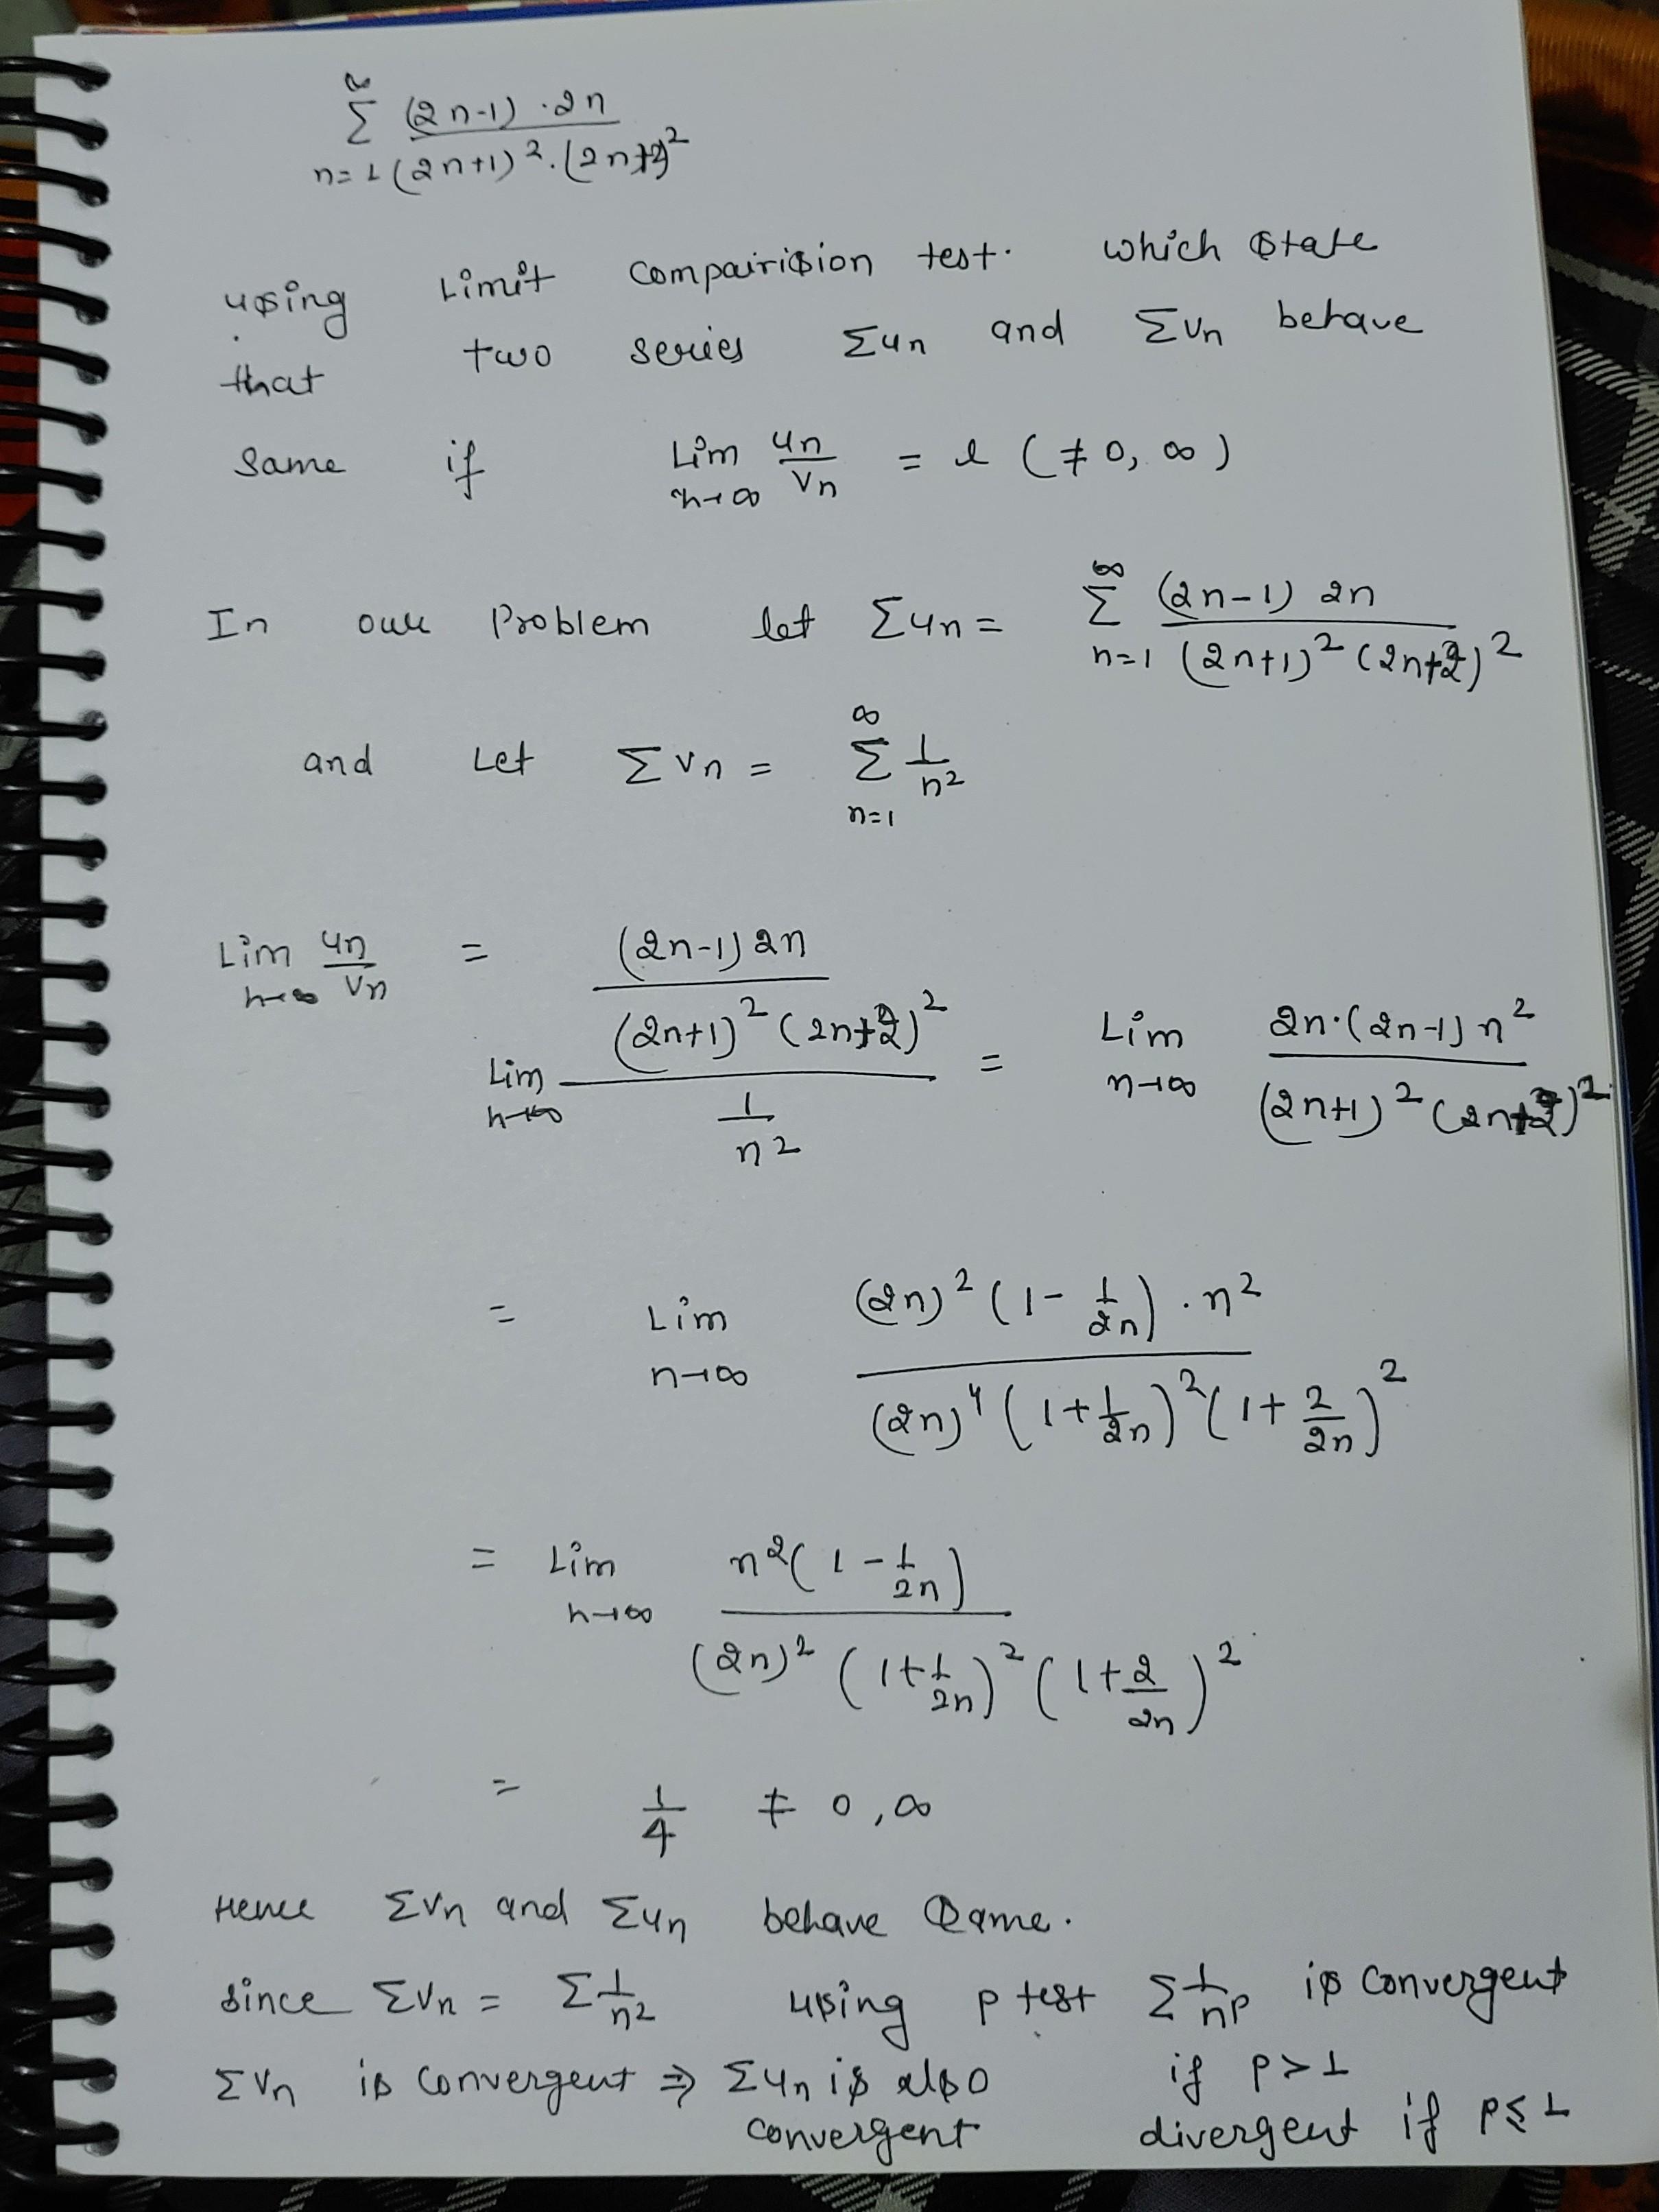 ∞
Σ (2n-1) · 2n
n=1 (2n+1)² · (2n+2)²
using Limit compairision test. which state
that two series Σun and Σvn behave
same if Lim un/vn = l (≠ 0, ∞)
n→∞
In our Problem let Σun = ∞ Σ n=1 (2n-1) 2n / (2n+1)² (2n+2)²
and Let Σvn = ∞ Σ n=1 1/n²
Lim n→∞ un/vn = Lim n→∞ (2n-1) 2n / (2n+1)² (2n+2)² / 1/n² = Lim n→∞ 2n·(2n-1) n² / (2n+1)² (2n+2)²
= Lim n→∞ (2n)² (1 - 1/2n) · n² / (2n)⁴ (1 + 1/2n)² (1 + 2/2n)²
= Lim n→∞ n² (1 - 1/2n) / (2n)² (1 + 1/2n)² (1 + 2/2n)²
= 1/4 ≠ 0, ∞
Hence Σvn and Σun behave same.
since Σvn = Σ 1/n² using p test Σ 1/nᵖ is convergent
if p > 1
divergent if p ≤ 1
Σvn is convergent ⇒ Σun is also
convergent